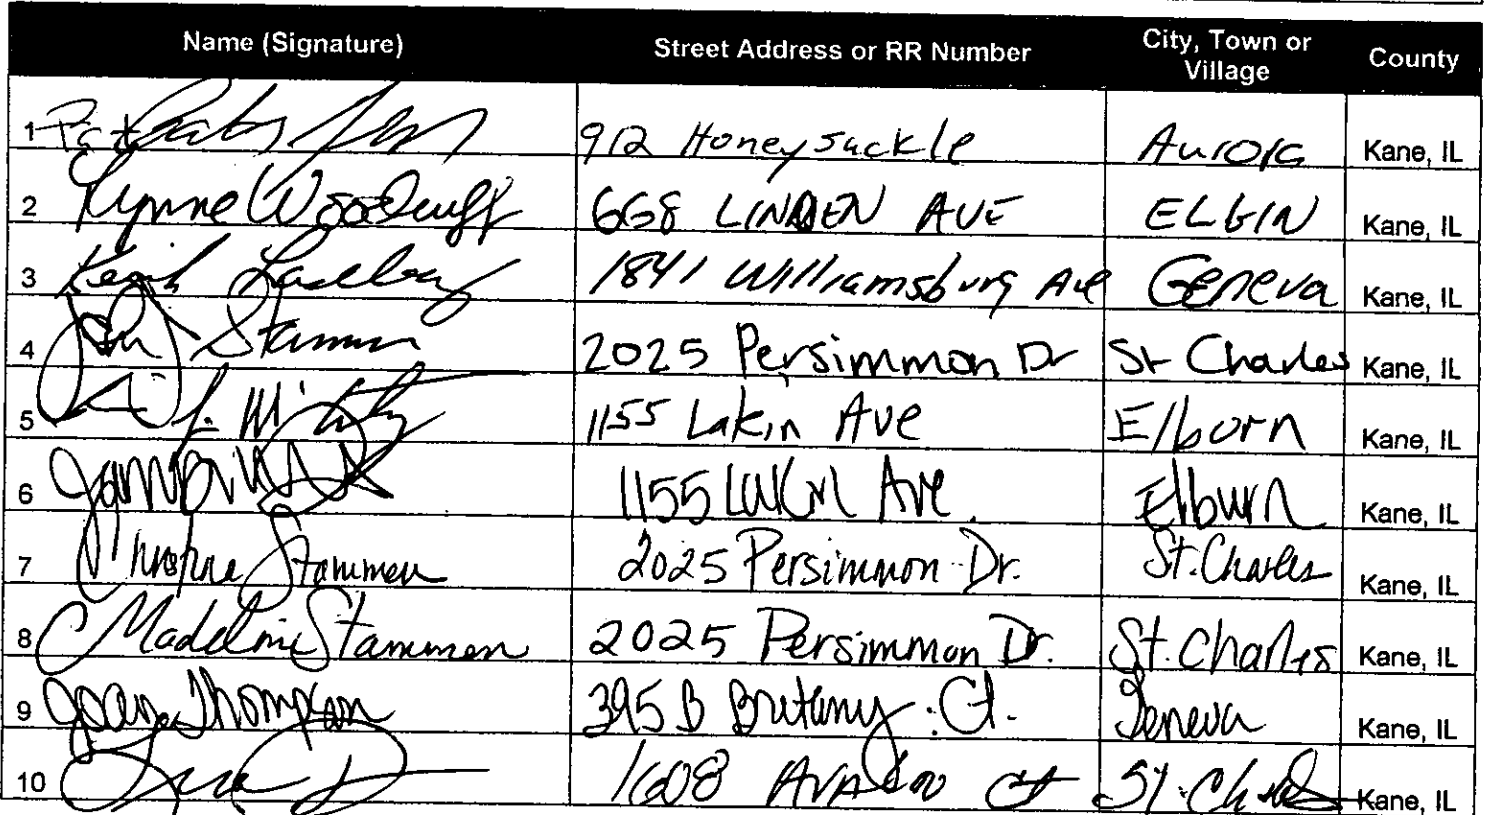 Name (Signature) Street Address or RR Number City, Town or Village County
1 Pat 912 Honeysuckle Aurora Kane, IL
2 Lynne Woodruff 668 LINDEN AVE ELGIN Kane, IL
3 1841 Williamsburg Ave Geneva Kane, IL
4 Stammen 2025 Persimmon Dr St Charles Kane, IL
5 1155 Lakin Ave Elburn Kane, IL
6 1155 Lakin Ave. Elburn Kane, IL
7 Christine Stammen 2025 Persimmon Dr. St. Charles Kane, IL
8 Madeline Stammen 2025 Persimmon Dr. St. Charles Kane, IL
9 Thompson 395 B Brittany Ct. Geneva Kane, IL
10 1608 Avalon Ct St. Charles Kane, IL